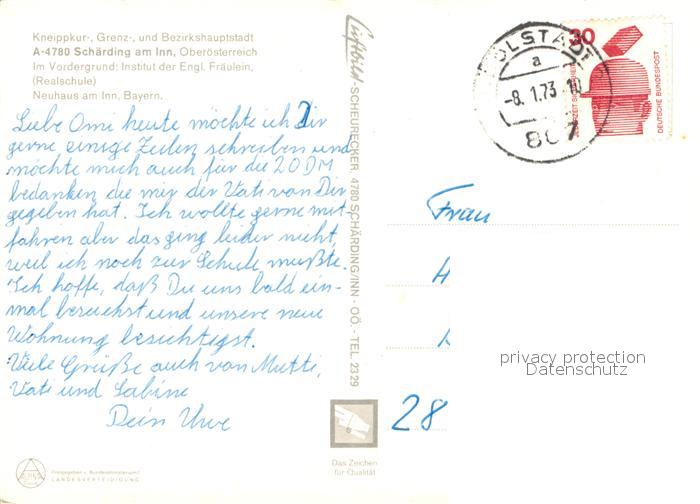 Kneippkur-, Grenz-, und Bezirkshauptstadt
A-4780 Schärding am Inn, Oberösterreich
Im Vordergrund: Institut der Engl. Fräulein,
(Realschule)
Neuhaus am Inn, Bayern.
Liebe Omi heute möchte ich Dir
gerne einige Zeilen schreiben und
möchte mich auch für die 20 DM
bedanken die mir der Vati von Dir
gegeben hat. Ich wollte gerne mit-
fahren aber das ging leider nicht,
weil ich noch zur Schule mußte.
Ich hoffe, daß Du uns bald ein-
mal besuchst und unsere neue
Wohnung besichtigst.
Viele Grüße auch von Mutti,
Vati und Sabine
Dein Uwe
Luftbild-SCHEURECKER, 4780 SCHÄRDING/INN - OÖ. - TEL. 2329
OLSTADT
a
-8.1.73-10
807
30
DEUTSCHE BUNDESPOST
Frau
H
privacy protection
Datenschutz
28
Das Zeichen
für Qualität
LANDESVERTEIDIGUNG